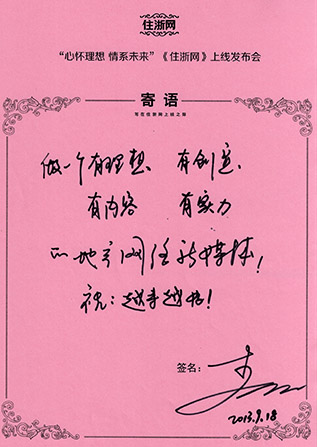 住浙网
“心怀理想 情系未来”《住浙网》上线发布会
寄语
写在住浙网上线之际
做一个有理想、有创意、
有内容 有实力
的地产网络新媒体！
祝：越来越好！
签名：
2013.9.18